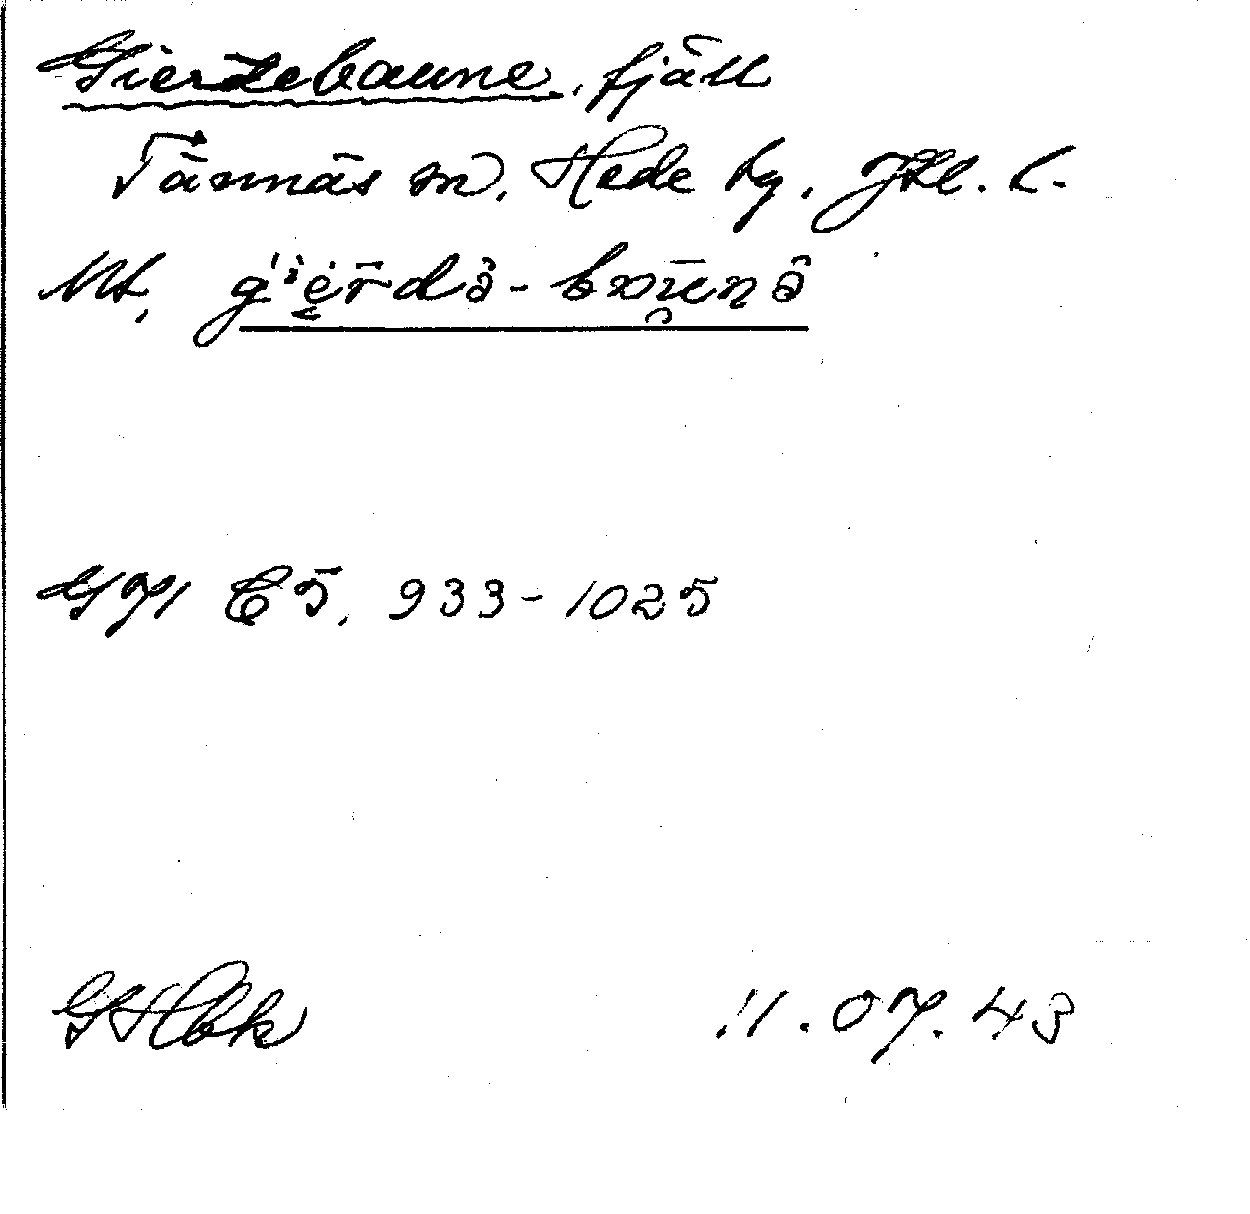 Gierdebaune, fjäll
Tännäs sn, Hede tg. Jtl. l.
Ut. g'ierdâ-bαunâ
GHI E5, 933-1025
GHbk 11.07.43